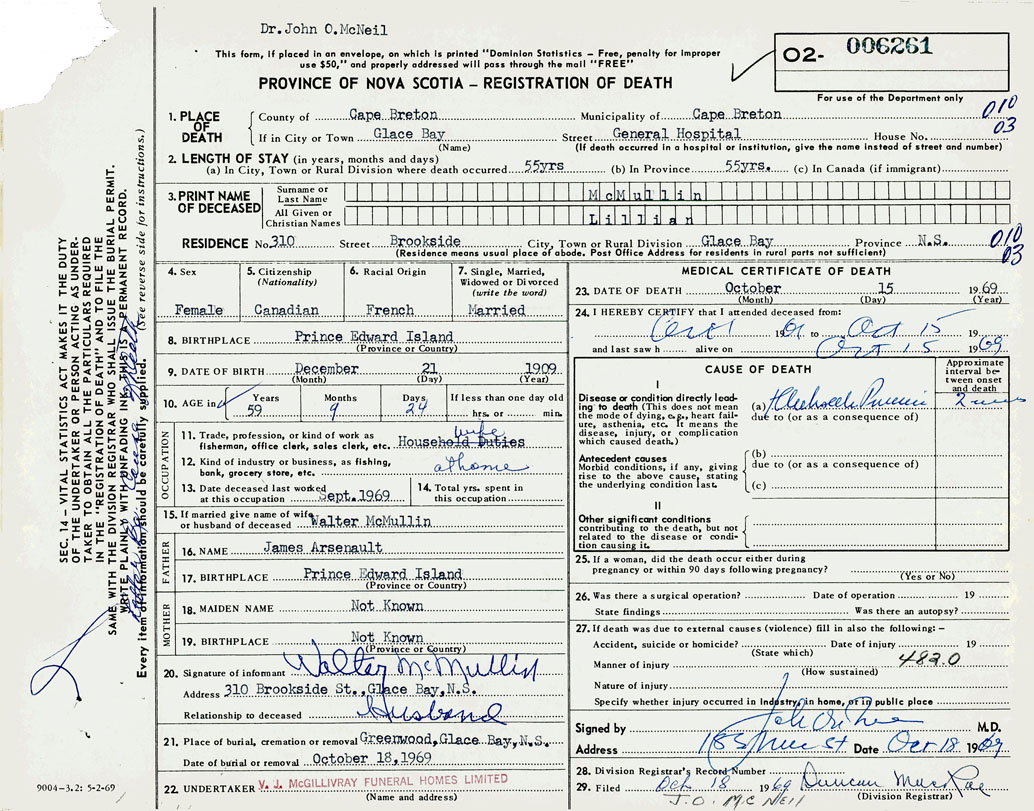 Dr. John O. McNeil
This form, if placed in an envelope, on which is printed "Dominion Statistics – Free, penalty for improper
use $50," and properly addressed will pass through the mail "FREE"
PROVINCE OF NOVA SCOTIA – REGISTRATION OF DEATH
O2- 006261
For use of the Department only
1. PLACE OF DEATH
County of Cape Breton Municipality of Cape Breton
010
03
If in City or Town Glace Bay Street General Hospital House No.
(Name) (If death occurred in a hospital or institution, give the name instead of street and number)
2. LENGTH OF STAY (in years, months and days)
(a) In City, Town or Rural Division where death occurred 55yrs (b) In Province 55yrs. (c) In Canada (if immigrant)
3. PRINT NAME OF DECEASED
Surname or Last Name McMullin
All Given or Christian Names Lillian
RESIDENCE No. 310 Street Brookside City, Town or Rural Division Glace Bay Province N.S.
(Residence means usual place of abode. Post Office Address for residents in rural parts not sufficient)
010
03
4. Sex
Female
5. Citizenship
(Nationality)
Canadian
6. Racial Origin
French
7. Single, Married,
Widowed or Divorced
(write the word)
Married
8. BIRTHPLACE Prince Edward Island
(Province or Country)
9. DATE OF BIRTH December 21 1909
(Month) (Day) (Year)
10. AGE in
Years Months Days If less than one day old
59 9 24 hrs. or min.
OCCUPATION
11. Trade, profession, or kind of work as
fisherman, office clerk, sales clerk, etc. Household Duties
wife
12. Kind of industry or business, as fishing,
bank, grocery store, etc. at home
13. Date deceased last worked
at this occupation Sept. 1969
14. Total yrs. spent in
this occupation
15. If married give name of wife
or husband of deceased Walter McMullin
FATHER
16. NAME James Arsenault
17. BIRTHPLACE Prince Edward Island
(Province or Country)
MOTHER
18. MAIDEN NAME Not Known
19. BIRTHPLACE Not Known
(Province or Country)
20. Signature of informant Walter McMullin
Address 310 Brookside St., Glace Bay, N.S.
Relationship to deceased Husband
21. Place of burial, cremation or removal Greenwood, Glace Bay, N.S.
Date of burial or removal October 18, 1969
22. UNDERTAKER V. J. McGILLIVRAY FUNERAL HOMES LIMITED
(Name and address)
MEDICAL CERTIFICATE OF DEATH
23. DATE OF DEATH October 15 1969
(Month) (Day) (Year)
24. I HEREBY CERTIFY that I attended deceased from:
19 to Oct 15 19
and last saw h alive on Oct 15 1969
CAUSE OF DEATH
Approximate
interval be-
tween onset
and death
I
Disease or condition directly lead-
ing to death (This does not mean
the mode of dying, e.g., heart fail-
ure, asthenia, etc. It means the
disease, injury, or complication
which caused death.)
(a)
due to (or as a consequence of)
Antecedent causes
Morbid conditions, if any, giving
rise to the above cause, stating
the underlying condition last.
(b)
due to (or as a consequence of)
(c)
II
Other significant conditions
contributing to the death, but not
related to the disease or condi-
tion causing it.
25. If a woman, did the death occur either during
pregnancy or within 90 days following pregnancy?
(Yes or No)
26. Was there a surgical operation? Date of operation 19
State findings Was there an autopsy?
27. If death was due to external causes (violence) fill in also the following: –
Accident, suicide or homicide? Date of injury 19
(State which)
Manner of injury 482.0
(How sustained)
Nature of injury
Specify whether injury occurred in Industry, in home, or in public place
Signed by M.D.
Address 185 St Date Oct 18 1969
28. Division Registrar's Record Number
29. Filed Oct 18 1969 Duncan MacRae
J. O. McNEIL (Division Registrar)
SEC. 14 – VITAL STATISTICS ACT MAKES IT THE DUTY
OF THE UNDERTAKER OR PERSON ACTING AS UNDER-
TAKER TO OBTAIN ALL THE PARTICULARS REQUIRED
IN THE "REGISTRATION OF DEATH" AND TO FILE THE
SAME WITH THE DIVISION REGISTRAR WHO SHALL ISSUE THE BURIAL PERMIT.
WRITE PLAINLY WITH UNFADING INK. THIS IS A PERMANENT RECORD.
Every item of information should be carefully supplied. (See reverse side for instructions.)
9004-3.2: 5-2-69